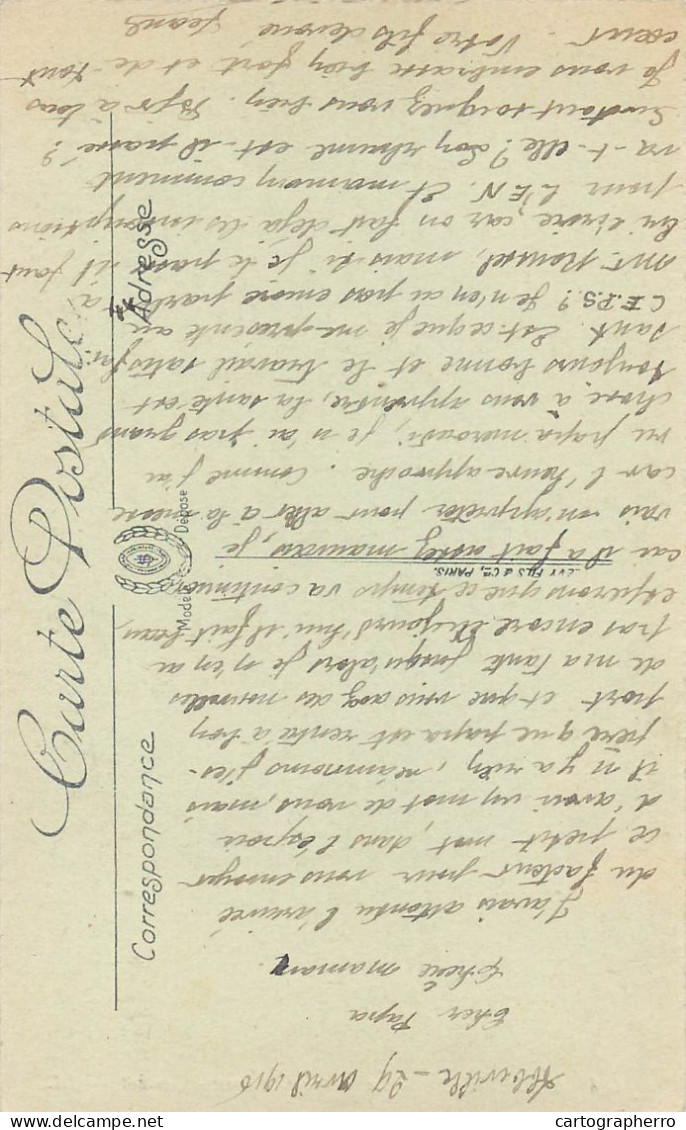 Abbeville - 29 Avril 1916
Cher Papa
Chère maman.
J'avais attendu l'arrivée
du facteur pour vous envoyer
ce petit mot, dans l'espoir
d'avoir un mot de vous, mais
il n'y a rien, néanmoins j'es-
père que papa est rentré à bon
port et que vous avez des nouvelles
de ma tante jusqu'alors je n'en ai
pas encore. Aujourd'hui il fait beau,
espérons que ce temps va continuer
car il a fait assez mauvais, je
vais m'apprêter pour aller à la messe
car l'heure approche. Comme j'ai
vu papa mercredi, je n'ai pas grand
chose à vous apprendre, la santé est
toujours bonne et le travail satisfai
sant. Est-ce que je me présente au
C.E.P.S.? Je n'en ai pas encore parlé à
Mr. Roussel, mais si je le passe il faut
lui écrire, car on fait déjà les inscriptions
pour l'E.N. Et maman comment
va-t-elle? Son rhume est-il passé?
Surtout soignez vous bien. à tous
Je vous embrasse bien fort et de tout
cœur - Votre fils dévoué Jean
Carte Postale
Correspondance
Adresse
Modèle Déposé
LEVY FILS & Cie, PARIS.
delcampe.net
cartographerro